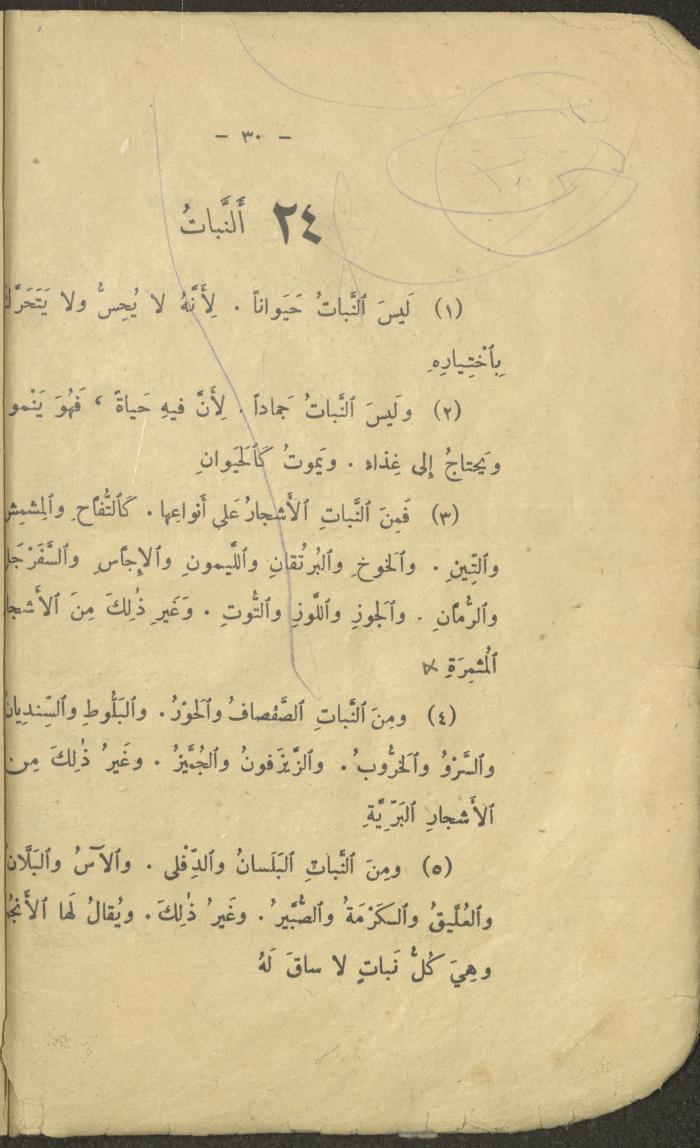 - ٣٠ -
٢٤ أَلنَّباتُ
(١) لَيسَ ٱلنَّباتُ حَيَواناً . لِأَنَّهُ لا يُحِسُّ ولا يَتَحَرَّكُ
بِٱخْتِيارِهِ
(٢) ولَيسَ ٱلنَّباتُ جَماداً . لِأَنَّ فيهِ حَياةً ، فَهُوَ يَنْمو
ويَحتاجُ إِلى غِذاء . ويَموتُ كَٱلحَيوانِ
(٣) فَمِنَ ٱلنَّباتِ ٱلأَشجارُ عَلى أَنواعِها . كَٱلتُّفَّاحِ وٱلمِشمِشِ
وٱلتِّينِ . وٱلخوخِ وٱلبُرتُقانِ وٱللَّيمونِ وٱلإِجَّاصِ وٱلسَّفَرْجَلِ
وٱلرُّمَّانِ . وٱلجوزِ وٱللَّوزِ وٱلتُّوتِ . وَغَيرِ ذٰلِكَ مِنَ ٱلأَشجا
ٱلمُثمِرَةِ
(٤) ومِنَ ٱلنَّباتِ ٱلصَّفصافُ وٱلحَوْرُ . وٱلبَلُّوطِ وٱلسِّنديانُ
وٱلسَّرْوُ وٱلخَرُّوبُ . وٱلزَّيزَفونُ وٱلجُمَّيزُ . وغَيرُ ذٰلِكَ مِن
ٱلأَشجارِ ٱلبَرِّيَّةِ
(٥) ومِنَ ٱلنَّباتِ ٱلبَلَسانُ وٱلدِّفْلى . وٱلآسُ وٱلبَلَّانُ
وٱلعُلَّيقُ وٱلكَرْمَةُ وٱلصُّبَّيرُ . وغَيرُ ذٰلِكَ . ويُقالُ لَها
وهِيَ كُلُّ نَباتٍ لا ساقَ لَهُ